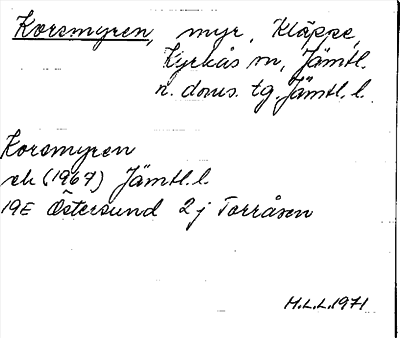 Korsmyren, myr, Kläppe,
Kyrkås sn, Jämtl.
n. doms. tg. Jämtl. l.
Korsmyren
ek (1967) Jämtl. l.
19E Östersund 2 j Torråsen
H.L.L. 1971